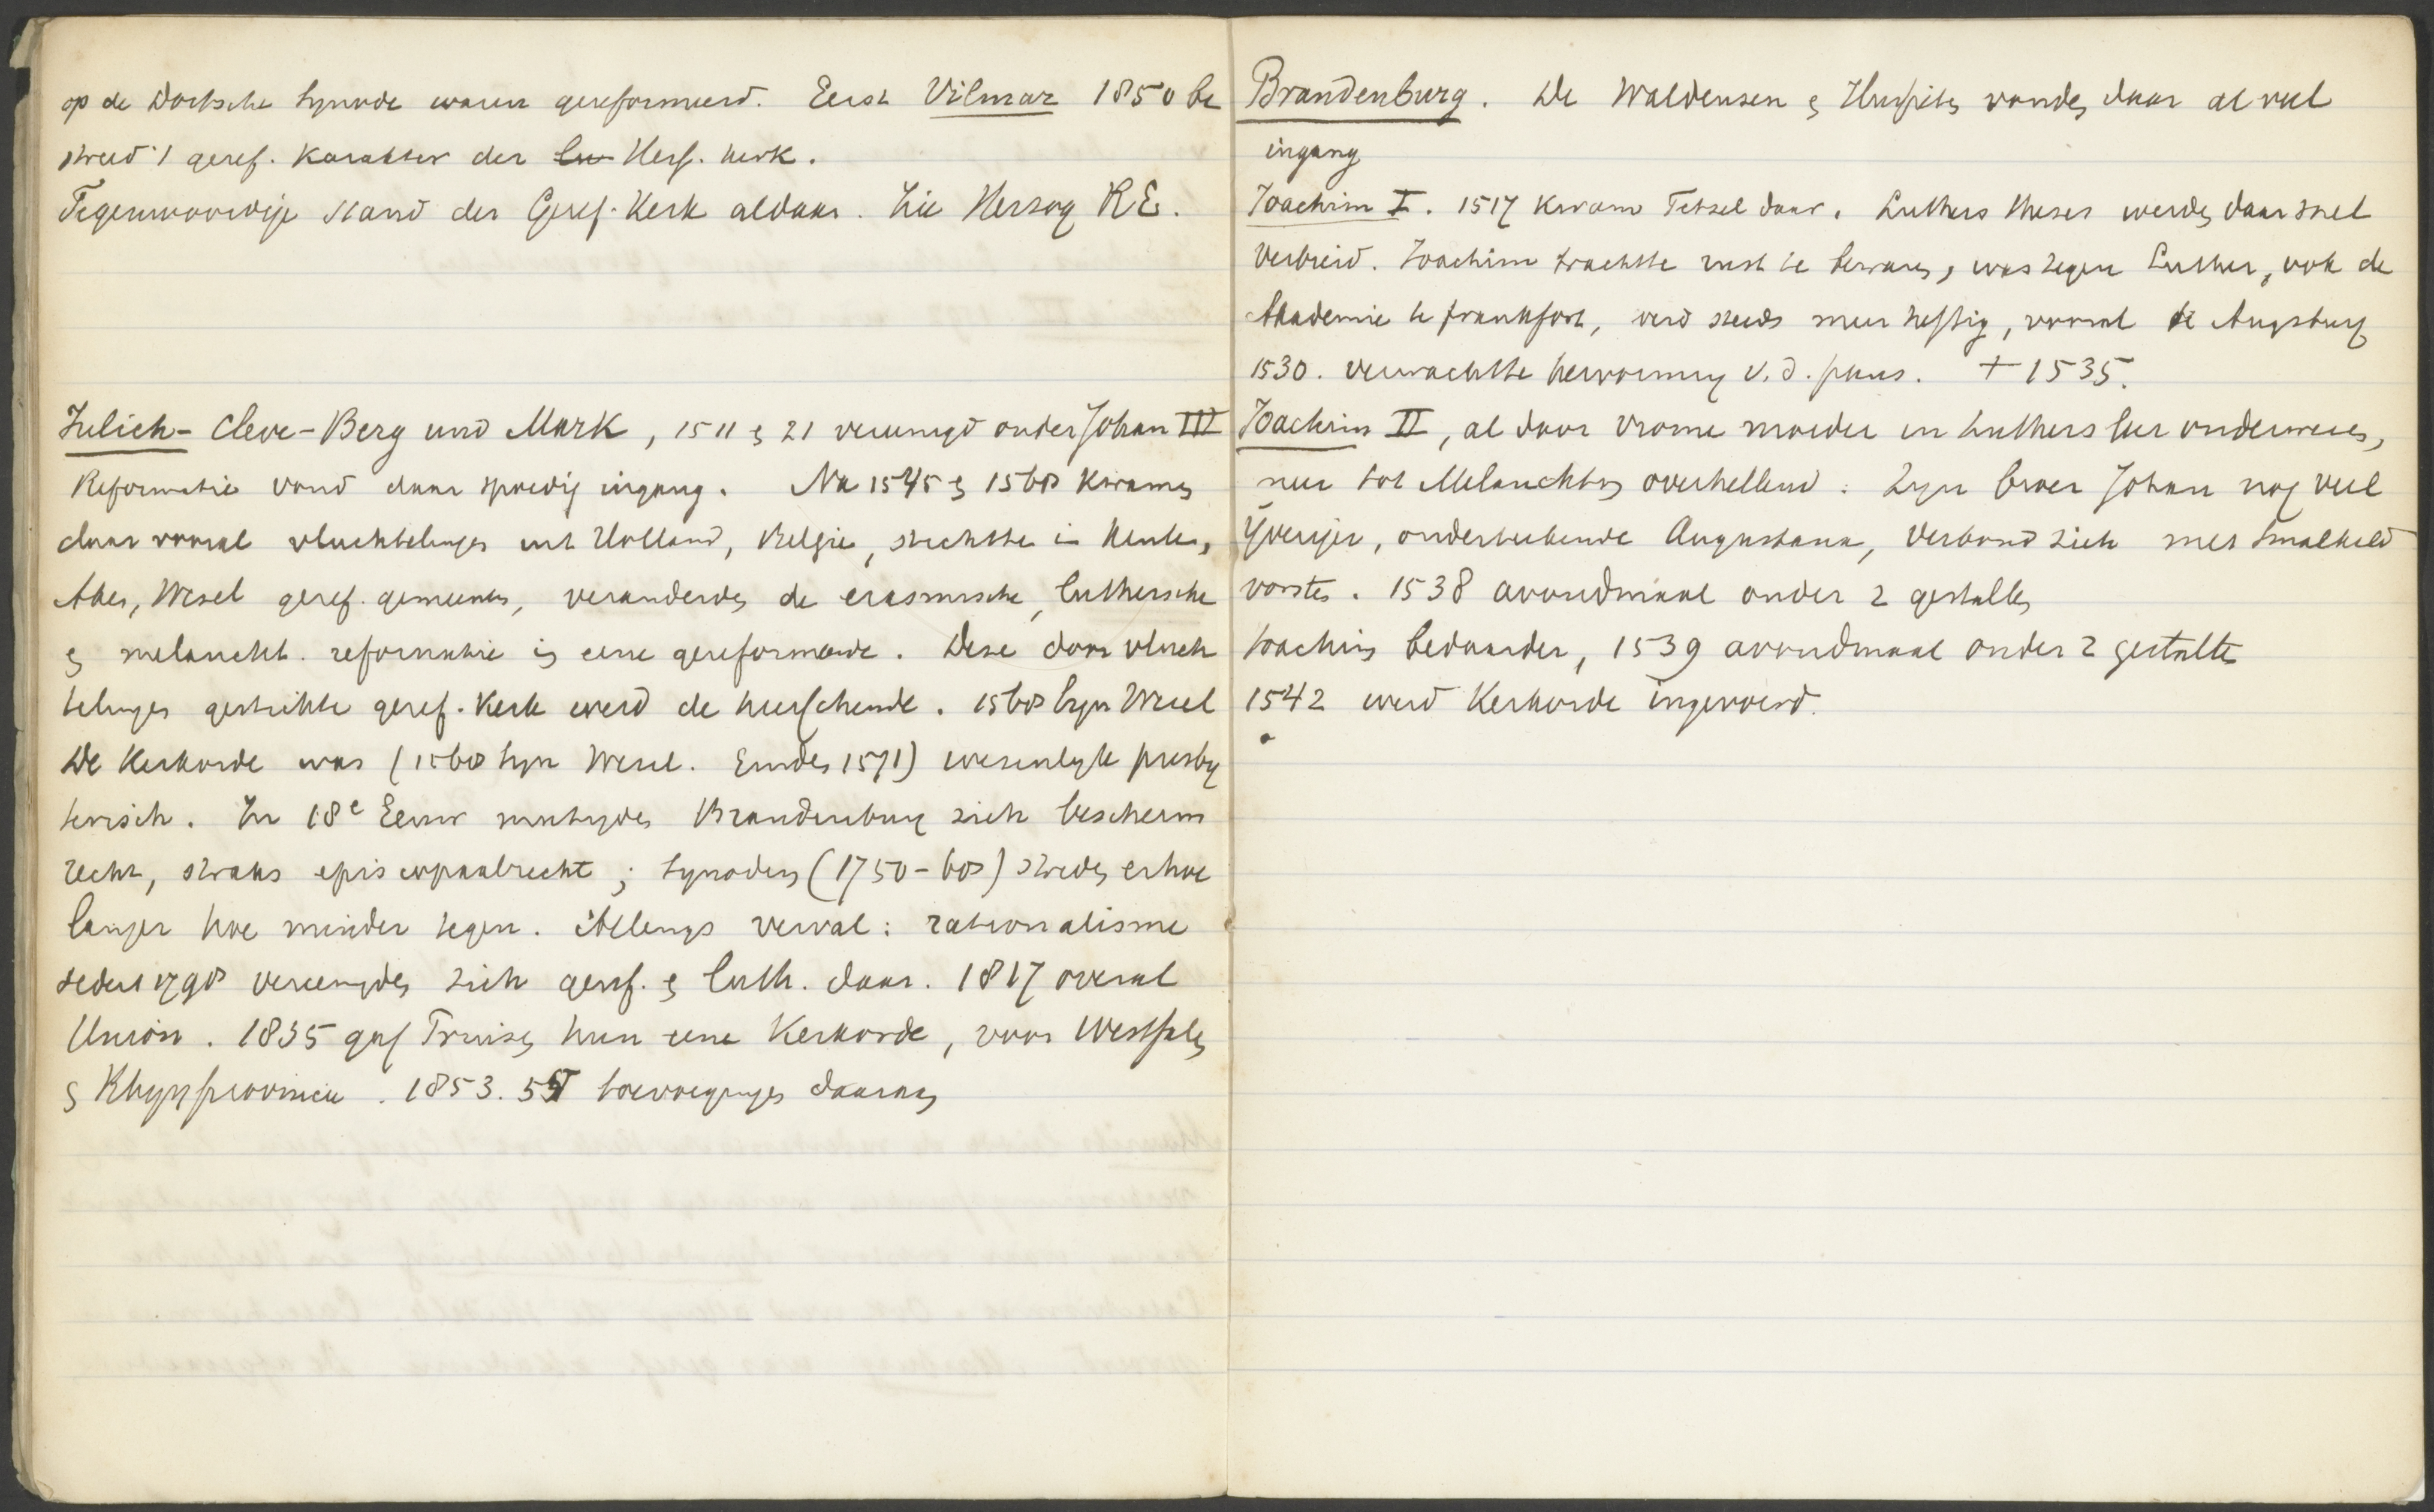 op de Dortsche Synode waren gereformeerd. Eerst Vilmar 1850 be
streed 't geref. karakter der Hess. kerk.
Tegenwoordige stand der Geref. Kerk aldaar. Zie Herzog RE.
Julich-Cleve-Berg und Mark, 1511 & 21 vereenigd onder Johan III
Reformatie vond daar spoedig ingang. Na 1545 & 1560 kwamen
daar vooral vluchtelingen uit Holland, Belgie, stichtte in Keulen,
Aken, Wesel geref. gemeenten, veranderden de erasmische, luthersche
en melancht. reformatie in eene gereformeerde. Deze door vluch
telingen gestichte geref. Kerk werd de heerschende. 1568 Syn Wesel
De Kerkorde was (1568 Syn Wesel. Emden 1571) wezenlijk presby
terisch. In 18e Eeuw matigden Brandenburg zich bescherm
recht, straks episcopaalrecht; Synoden (1750-60) streden er hoe
langer hoe minder tegen. Allengs verval: rationalisme
sedert 1790 vereenigden zich geref. & luth. daar. 1817 overal
Union. 1835 gaf Pruisen hun eene Kerkorde, voor Westfalen
en Rhijnprovincie. 1853. 55 toevoegingen daaraan
Brandenburg. De Waldensen en Hussiten vonden daar al veel
ingang
Joachim I. 1517 kwam Tetzel daar. Luthers theses werden daar snel
verbreid. Joachim trachtte rust te bewaren, was tegen Luther, ook de
Akademie te Frankfort, werd steeds meer heftig, vooral te Augsburg
1530. verwachtte hervorming v. d. paus. † 1535.
Joachim II, al door vrome moeder in Luthers leer onderwezen,
meer tot Melanchton overhellend. Zijn broer Johan nog veel
ijveriger, onderteekende Augustana, verbond zich met Smalkald
vorsten. 1538 avondmaal onder 2 gestalten
Joachim bedaarder, 1539 avondmaal onder 2 gestalten
1542 werd Kerkorde ingevoerd.